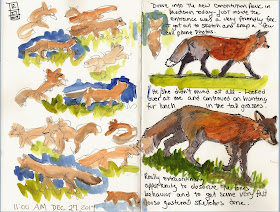 11:00 AM DEC 27 2014
Drove into the new Conservation Park in
Madison today - just inside the
entrance was a very friendly fox
I got out to sketch and snap a few
cell phone photos.
She didn't mind at all - looked
over at me and continued on hunting
for lunch in the tall grasses.
Really entertaining
opportunity to observe the fox's
behavior and to get some very fast
loose gestural sketches done.